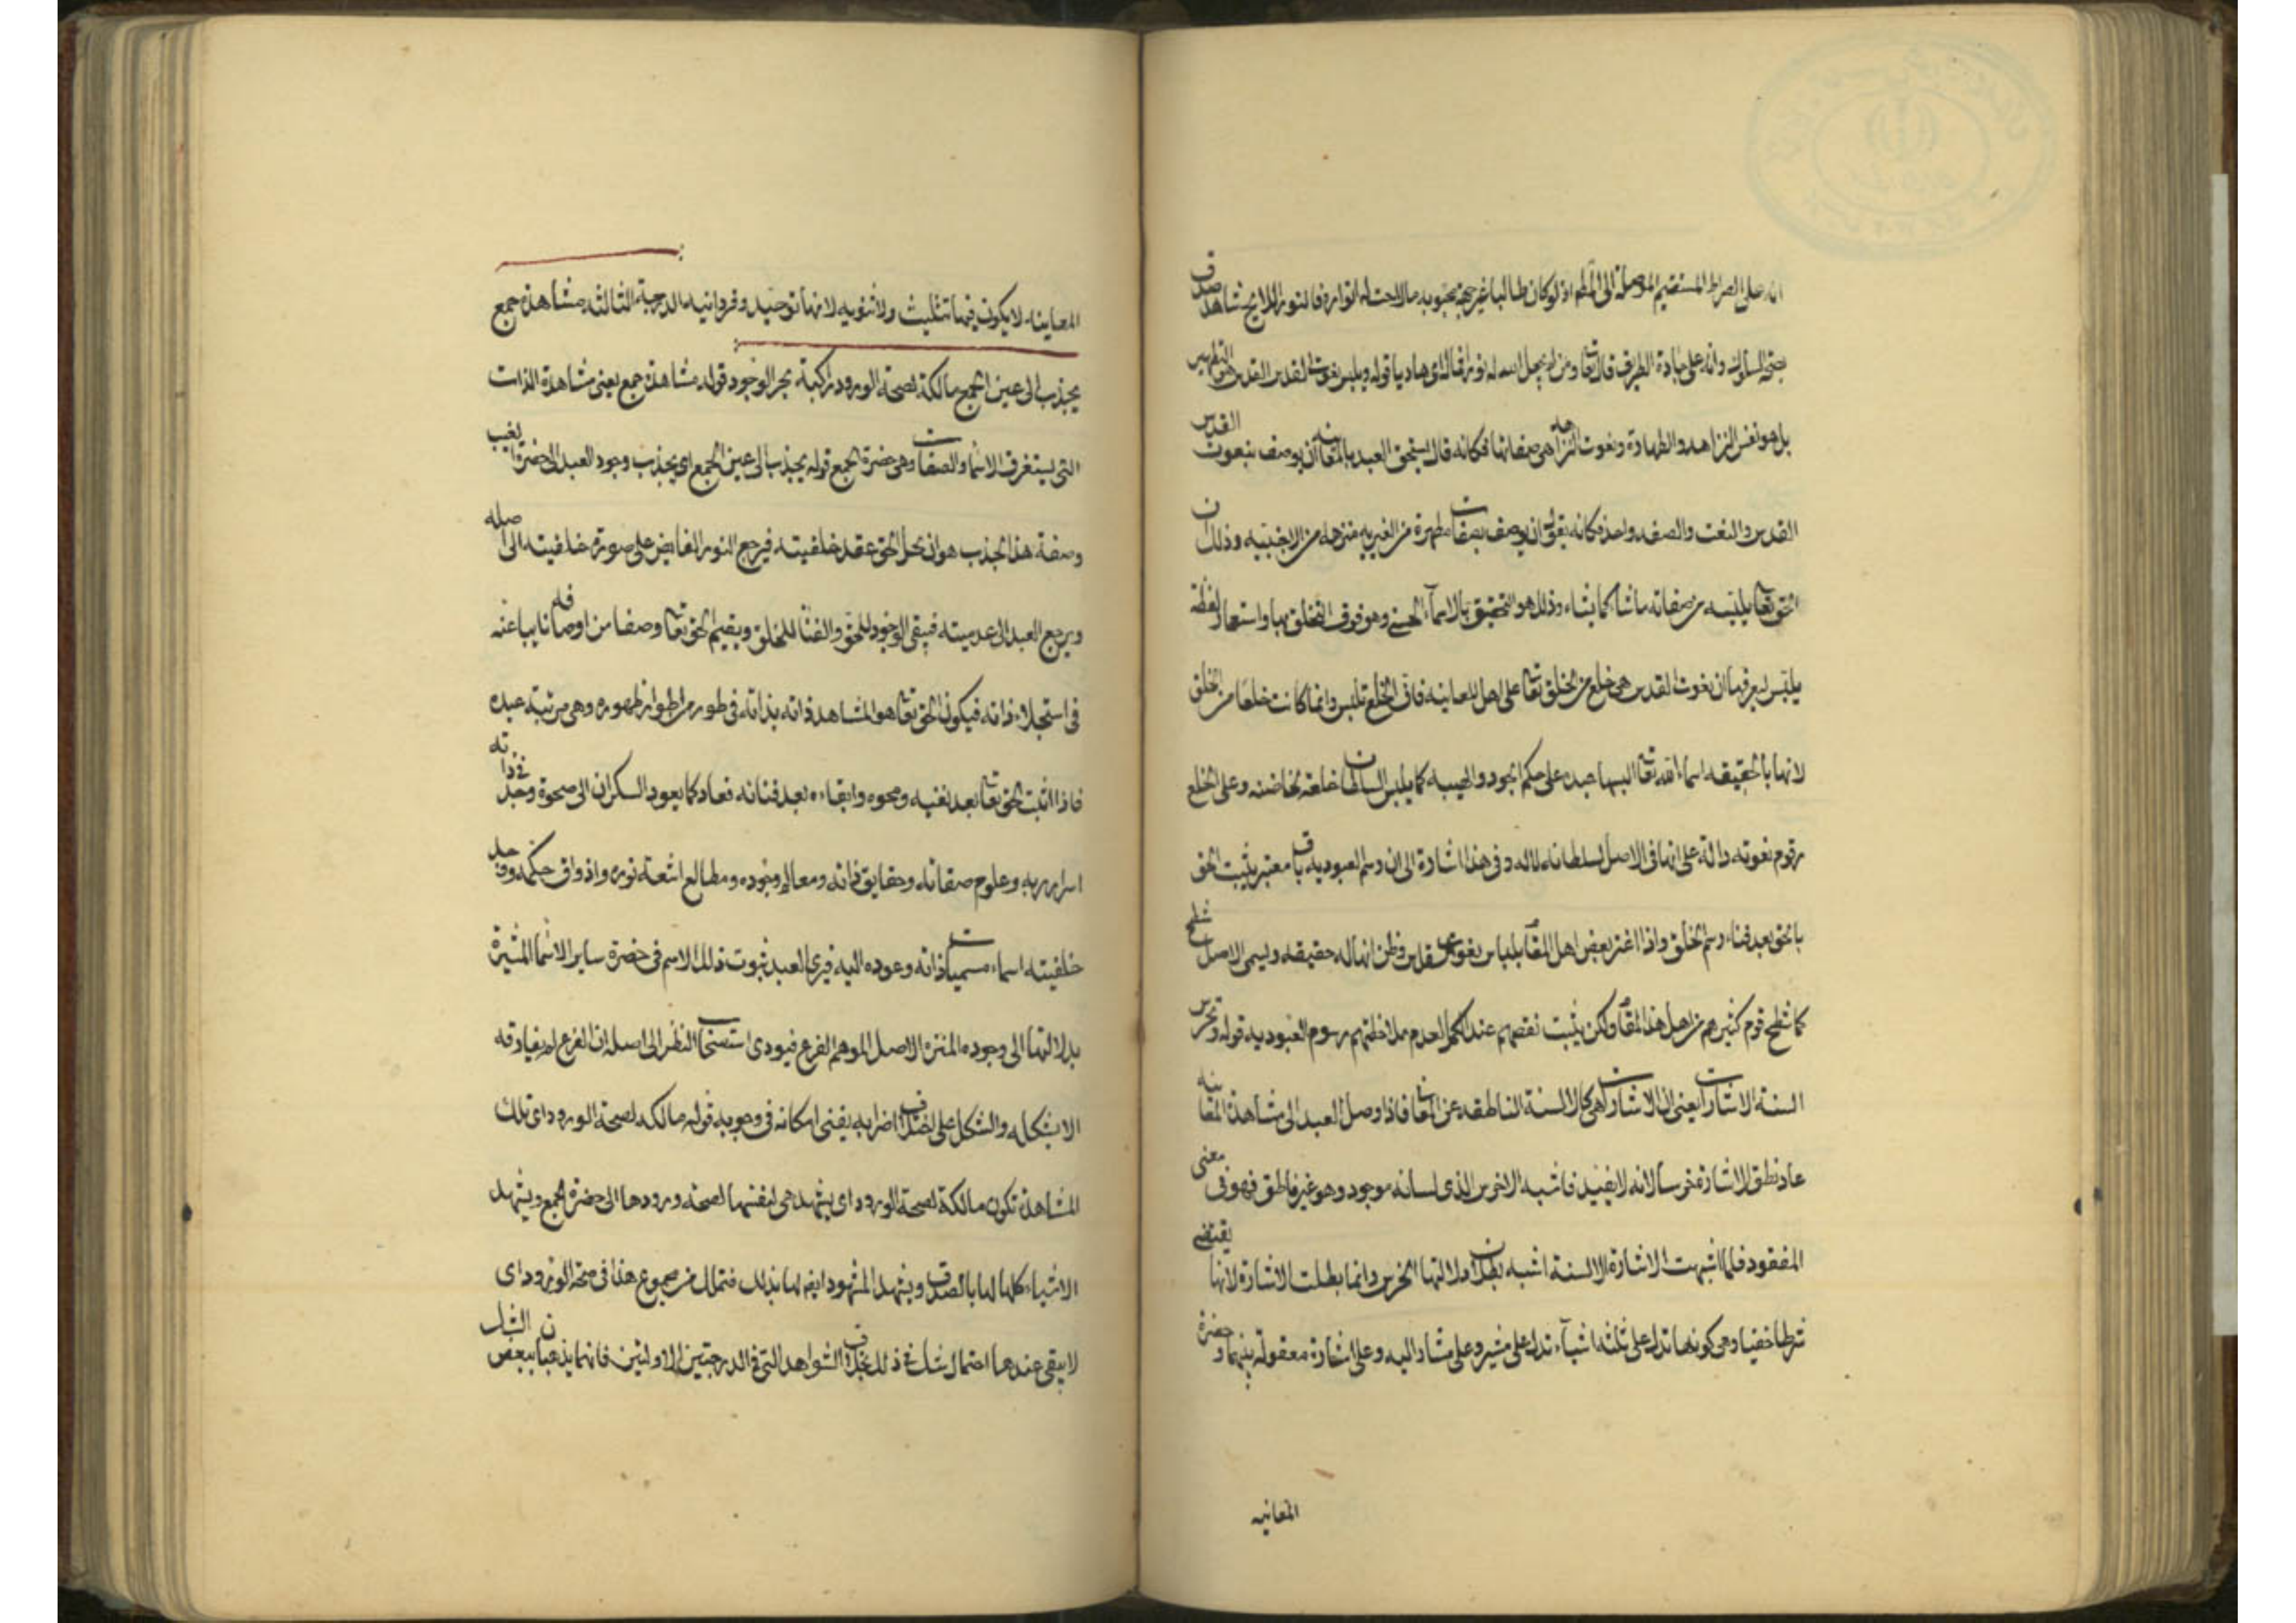 انه على الصراط المستقيم الموصلة الى المطلم اذ لو كان طالبا غير جهة محبوبه ما لاحت له انواره فالنور اللايح شاهد صدق
بصحة السلوك وانه على جادة الطريق قال تعا ومن لم يجعل الله له نورا فما له اى هاديا قوله ويلبس نعوت القدس القدس هو التطهير
بل هو نفس النزاهه والطهارة ونعوت النزاهه هى صفاتها فكانه قال يستحق العبد بالمعاينه ان يوصف بنعوت القدس
القدس والنعت والصفه واحد فكانه يقول ان يوصف بصفات مطهرة من الغيريه منزهه من الاجنبيه وذلك ان
الحق تعا يلبسه من صفاته ما شاء كما يشاء وذلك هو التحقيق بالاسماء الحسنى وهو فوق التخلق بها واستعار لفظة
يلبس ليعرفها ان نعوت القدس هى خلع من الحق تعا على اهل المعاينه فان الخلع تلبس وانما كانت خلعا من الخلق
لانها بالحقيقه اسماء الله تعا البسها عبده على حكم الجود والهيبه كما يلبس السلطان خلعته لخاصته وعلى الخلع
رقوم نعوته دالة على انها فى الاصل لسلطانه لا له وفى هذا اشارة الى ان رسم العبوديه باق معتبر يثبت الحق
بالحق بعد فناء رسم الخلق واذا اغتر بعض اهل المقا بلباس نعوت القدس وظن انها له حقيقه ونسى الاصل شطح
كما شطح قوم كثير هم من اهل هذا المقام ولكن يثبت نقصهم عند الكمل لعدم ملاحظتهم رسوم العبوديه قوله وتخرس
السنه الاشارات يعنى ان الاشارات هى كالالسنة الناطقه عن المعا فاذا وصل العبد الى مشاهدة المعاينه
عاد نطق الاشارة خرسا لانه لا يفيد فاشبه الاخرس الذى لسانه موجود وهو غير ناطق فهو فى معنى
المفقود فلما اشبهت الاشارة الالسنة اشبه بطلان دلالتها الخرس وانما بطلت الاشارة لانها يقتضى
شرطا خفيا وهى كونها تدل على ثلثه اشياء تدل على مشير وعلى مشار اليه وعلى اشارة معقولة بينهما وحضرة
المعاينه
المعاينه لا يكون فيها تثليث ولا ثنويه لانها توحيد وفردانيه الدرجة الثالثه مشاهدة جمع
يجذب الى عين الجمع مالكة لصحة الورود راكبة بحر الوجود قوله مشاهدة جمع يعنى مشاهدة الذات
التى يستغرق الاسماء والصفات وهى حضرة الجمع قوله يجذب الى عين الجمع اى يجذب وجود العبد الى حضرة الغيب
وصفة هذا الجذب هو ان يحل الحق عقد خلقيته فيرجع النور الفايض على صورة خلقيته الى اصله
ويرجع العبد الى عدميته فيبقى الوجود للحق والفناء للخلق ويقيم الحق تعا وصفا من اوصافه نايبا عنه
فى استجلاء ذاته فيكون الحق تعا هو المشاهد ذاته بذاته فى طور من اطوار ظهوره وهى مرتبة عبده
فاذا اثبت الحق تعا بعد نفيه ومحوه وابقاءه بعد فنائه فعاد كما يعود السكران الى صحوه وجد فى ذاته
اسرار ربه وعلوم صفاته وحقايق ذاته ومعالم وجوده ومطالع اشعة نوره واذواق حكمه ووجد
خلقيته اسماء مسميات ذاته وعوده اليه فيرى العبد ثبوت ذلك الاسم فى حضرة ساير الاسماء المشيرة
بدلالتها الى وجوده المنزه الاصل الموهم الفرع فيودى استصحاب النظر الى اصله ان الفرع لم يفارقه
الا بشكله والشكل على اختلاف اضرابه يفنى امكانه فى وجوبه قوله مالكه لصحة الورود اى تلك
المشاهدة تكون مالكة لصحة الورود اى يشهد هى لنفسها لصحة ورودها الى حضرة الجمع ويشهد
الاشياء كلها لها بالصدق ويشهد المشهود ايضا لها بذلك فتمالك من مجموع هذا فى صحة الورود اى
لا يبقى عندها احتمال شك فى ذلك بخلاف الشواهد التى فى الدرجتين الاوليتين فانهما يذهبان ببعض الشك